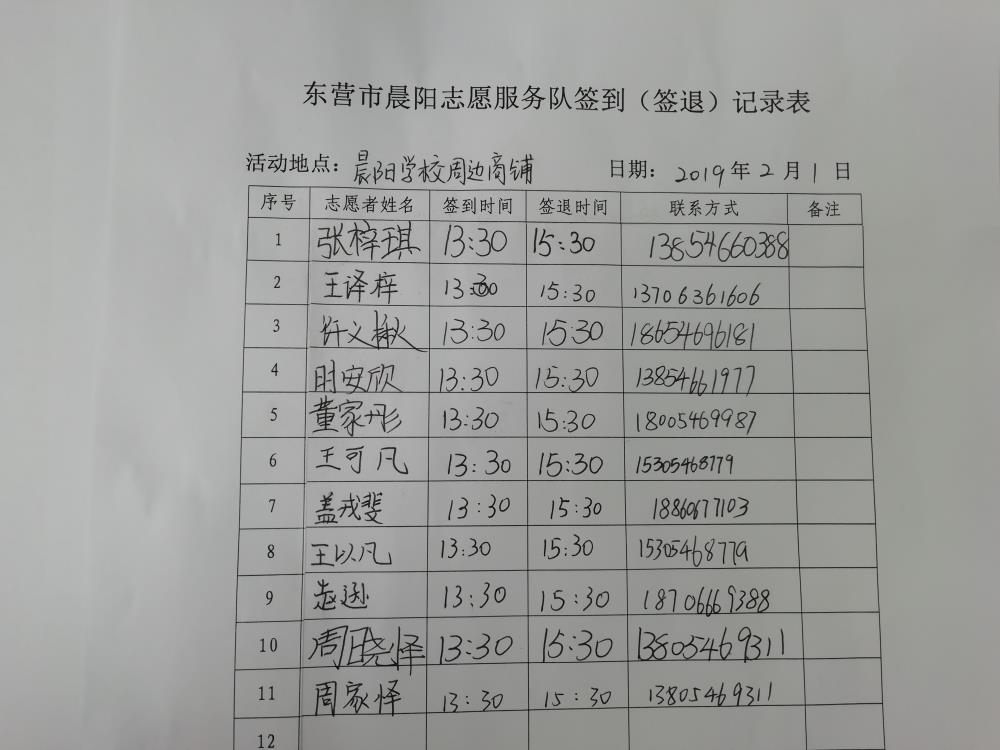 东营市晨阳志愿服务队签到（签退）记录表
活动地点：晨阳学校周边商铺 日期：2019年2月1日
序号 志愿者姓名 签到时间 签退时间 联系方式 备注
1 张梓琪 13:30 15:30 13854660388
2 王译梓 13:30 15:30 13706361606
3 许义楸 13:30 15:30 18654696181
4 时安欣 13:30 15:30 13854661977
5 董家彤 13:30 15:30 18005469987
6 王可凡 13:30 15:30 15305468779
7 盖戎斐 13:30 15:30 18860677103
8 王以凡 13:30 15:30 15305468779
9 赵逊 13:30 15:30 18706669388
10 周晓怿 13:30 15:30 13805469311
11 周家怿 13:30 15:30 13805469311
12